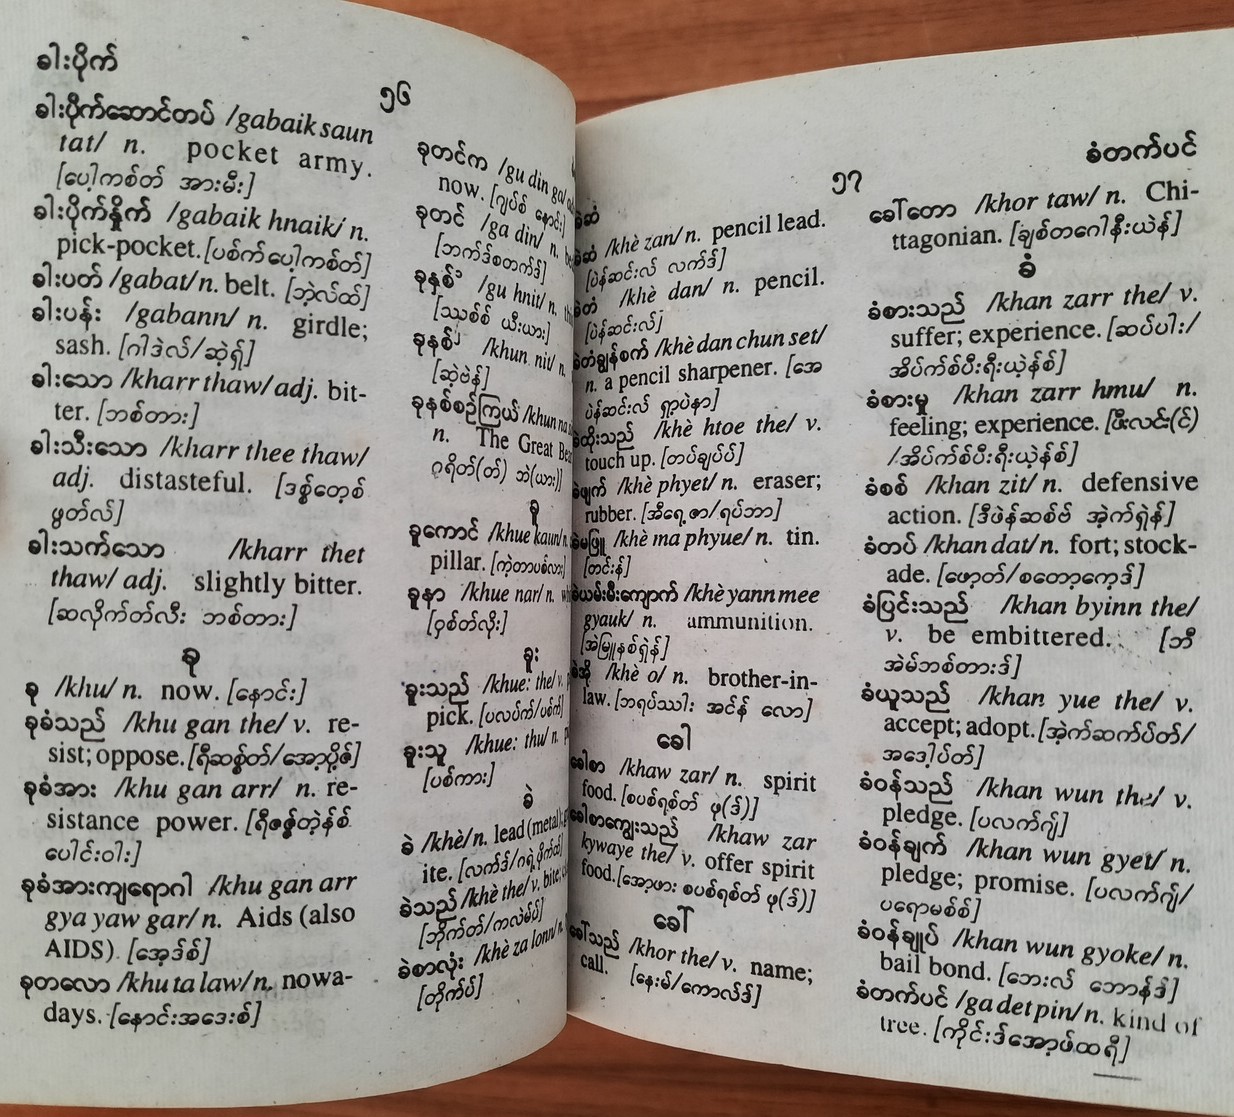 ခါးပိုက်
၅၆
ခါးပိုက်ဆောင်တပ် /gabaik saun
tat/ n. pocket army.
[ပေါ့ကစ်တ် အားမီး]
ခါးပိုက်နှိုက် /gabaik hnaik/ n.
pick-pocket. [ပစ်က်ပေါ့ကစ်တ်]
ခါးပတ် /gabat/ n. belt. [ဘဲ့လ်ထ်]
ခါးပန်း /gabann/ n. girdle;
sash. [ဂါဒဲလ်/ဆဲ့ရှ်]
ခါးသော /kharr thaw/ adj. bit-
ter. [ဘစ်တား]
ခါးသီးသော /kharr thee thaw/
adj. distasteful. [ဒစ္စ်တေ့စ်
ဖွတ်လ်]
ခါးသက်သော /kharr thet
thaw/ adj. slightly bitter.
[ဆလိုက်တ်လီး ဘစ်တား]
ခု
ခု /khu/ n. now. [နောင်း]
ခုခံသည် /khu gan the/ v. re-
sist; oppose. [ရီဆစ္စ်တ်/အော့ပို့ဇ်]
ခုခံအား /khu gan arr/ n. re-
sistance power. [ရီဇစ္စ်တဲ့န်စ်
ပေါင်းဝါး]
ခုခံအားကျရောဂါ /khu gan arr
gya yaw gar/ n. Aids (also
AIDS). [အေ့ဒ်စ်]
ခုတလော /khu ta law/ n. nowa-
days. [နောင်းအဒေးစ်]
ခုတင်က /gu din ga/
now. [ဂျပ်စ် နောင်း]
ခုတင် /ga din/ n.
[ဘက်ဒ်စတက်ဒ်]
ခုနှစ်၁ /gu hnit/ n.
[ဿစ်စ် ယီးယား]
ခုနှစ်၂ /khun nit/ n.
[ဆဲ့ဗဲန်]
ခုနစ်စဉ်ကြယ် /khun na
n. The Great
ဂရိတ်(တ်) ဘဲ(ယား)]
ခူ
ခူကောင် /khue kaun/ n.
pillar. [ကဲ့တာပစ်လား]
ခူနာ /khue nar/ n.
[ဝှစ်တ်လိုး]
ခူး
ခူးသည် /khue: the/ v.
pick. [ပလပ်က်/ပစ်က်]
ခူးသူ /khue: thu/ n.
[ပစ်ကား]
ခဲ
ခဲ /khè/ n. lead (metal);
ite. [လက်ဒ်/ဂရဲ့ဖိုက်ထ်]
ခဲသည် /khè the/ v. bite;
[ဘိုက်တ်/ကလဲမ်ပ်]
ခဲစာလုံး /khè za lonn/ n.
[တိုက်ပ်]
ခဲဆံ
၅၇
ခံတက်ပင်
ခဲဆံ /khè zan/ n. pencil lead.
[ပဲန်ဆင်းလ် လက်ဒ်]
ခဲတံ /khè dan/ n. pencil.
[ပဲန်ဆင်းလ်]
ခဲတံချွန်စက် /khè dan chun set/
n. a pencil sharpener. [အေ
ပဲန်ဆင်းလ် ရှာ့ပဲနာ]
ခဲထိုးသည် /khè htoe the/ v.
touch up. [တပ်ချပ်ပ်]
ခဲဖျက် /khè phyet/ n. eraser;
rubber. [အီရေ့ဇာ/ရပ်ဘာ]
ခဲမဖြူ /khè ma phyue/ n. tin.
[တင်းန်]
ခဲယမ်းမီးကျောက် /khè yann mee
gyauk/ n. ammunition.
[အဲမြူနစ်ရှဲန်]
ခဲအို /khè o/ n. brother-in-
law. [ဘရပ်ဿါး အင်န် လော]
ခေါ
ခေါစာ /khaw zar/ n. spirit
food. [စပစ်ရစ်တ် ဖု(ဒ်)]
ခေါစာကျွေးသည် /khaw zar
kywaye the/ v. offer spirit
food. [အော့ဖား စပစ်ရစ်တ် ဖု(ဒ်)]
ခေါ်
ခေါ်သည် /khor the/ v. name;
call. [နေးမ်/ကောလ်ဒ်]
ခေါ်တော /khor taw/ n. Chi-
ttagonian. [ချစ်တဂေါနီးယဲန်]
ခံ
ခံစားသည် /khan zarr the/ v.
suffer; experience. [ဆပ်ပါး/
အိပ်က်စ်ပီးရီးယဲ့န်စ်]
ခံစားမှု /khan zarr hmu/ n.
feeling; experience. [ဖီးလင်း(င်)
/အိပ်က်စ်ပီးရီးယဲ့န်စ်]
ခံစစ် /khan zit/ n. defensive
action. [ဒီဖဲန်ဆစ်ဗ် အဲ့က်ရှဲန်]
ခံတပ် /khan dat/ n. fort; stock-
ade. [ဖော့တ်/စတော့ကေ့ဒ်]
ခံပြင်းသည် /khan byinn the/
v. be embittered. [ဘီ
အဲမ်ဘစ်တားဒ်]
ခံယူသည် /khan yue the/ v.
accept; adopt. [အဲ့က်ဆက်ပ်တ်/
အဒေါ့ပ်တ်]
ခံဝန်သည် /khan wun the/ v.
pledge. [ပလက်ဂျ်]
ခံဝန်ချက် /khan wun gyet/ n.
pledge; promise. [ပလက်ဂျ်/
ပရောမစ်စ်]
ခံဝန်ချုပ် /khan wun gyoke/ n.
bail bond. [ဘေးလ် ဘောန်ဒ်]
ခံတက်ပင် /ga det pin/ n. kind of
tree. [ကိုင်းဒ်အော့ဖ်ထရီ]